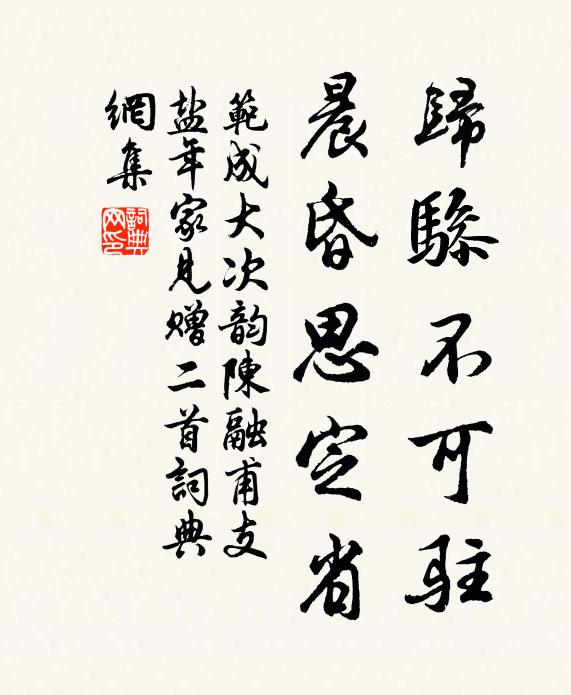 歸驂不可駐
晨昏思定省
範成大次韵陳融甫支
盐年家見贈二首詞典
網集
詞典
网印